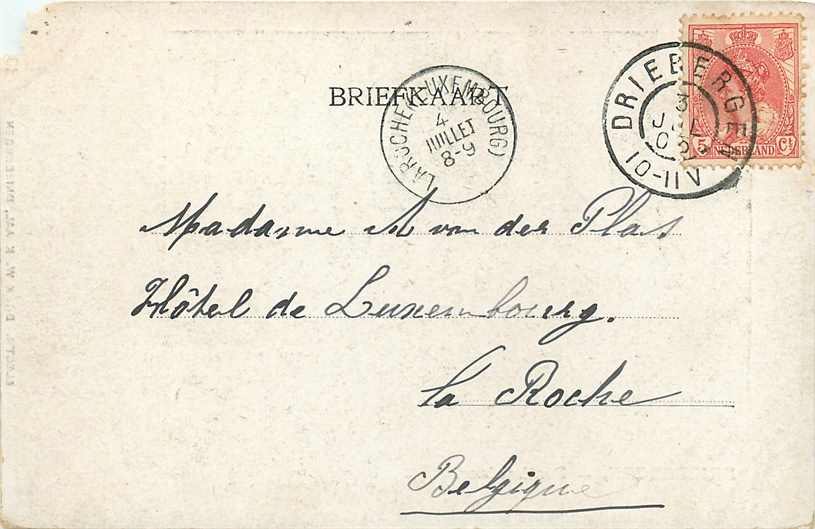 BRIEFKAART
LAROCHE (LUXEMBOURG)
4
JUILLET
8-9
DRIEBERGEN
3
JUL
02
10-11V
5 NEDERLAND Ct
Madame A van der Plas
Hôtel de Luxembourg.
la Roche
Belgique